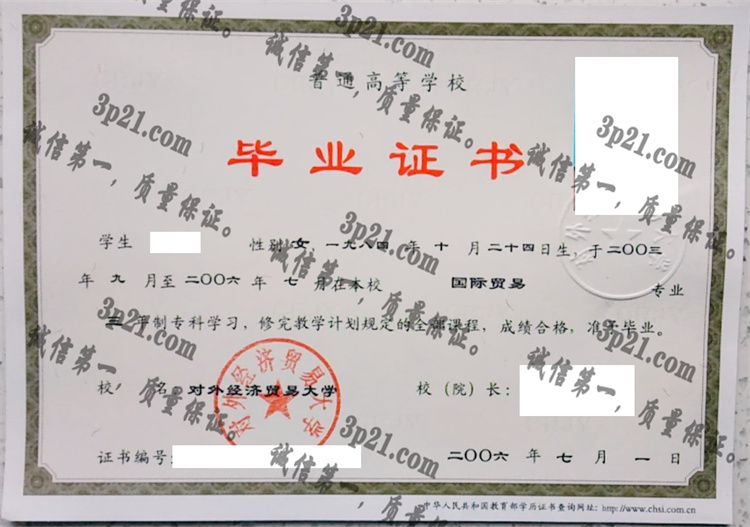 普通高等学校
毕业证书
学生 性别 女，一九八四 年 十 月 二十四日生，于二〇〇三
年 九 月至 二〇〇六 年 七 月在本校 国际贸易 专业
三 年制专科学习，修完教学计划规定的全部课程，成绩合格，准予毕业。
校 名：对外经济贸易大学 校（院）长：
证书编号： 二〇〇六 年 七 月 一 日
中华人民共和国教育部学历证书查询网址：http://www.chsi.com.cn
对外经济贸易大学
3p21.com
诚信第一，质量保证。
3p21.com
诚信第一，质量保证。
3p21.com
诚信第一，质量保证。
3p21.com
诚信第一，质量保证。
3p21.com
诚信第一，质量保证。
3p21.com
诚信第一，质量保证。
3p21.com
诚信第一，质量保证。
3p21.com